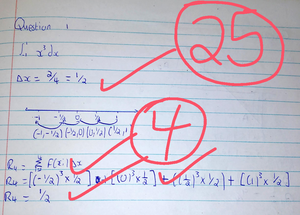 Question 1
∫ x³ dx
Δx = 2/4 = 1/2
25
-1 -1/2 0 1/2
(-1,-1/2) (-1/2,0) (0,1/2) (1/2,1
4
R₄ = Σ f(xᵢ) Δx
R₄ = [(-1/2)³ × 1/2] + [(0)³ × 1/2] + [(1/2)³ × 1/2] + [(1)³ × 1/2]
R₄ = 1/2